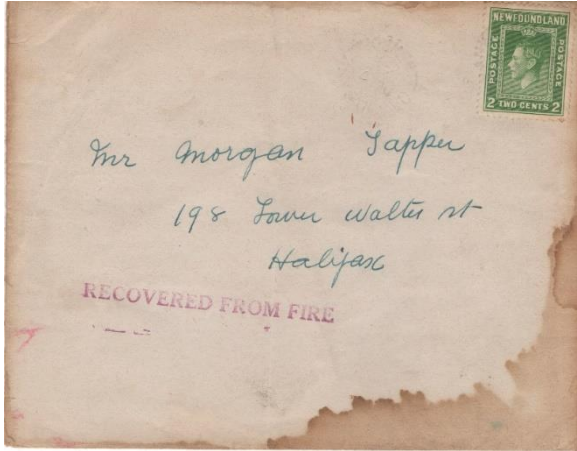 NEWFOUNDLAND
POSTAGE
POSTAGE
2 TWO CENTS 2
Mr Morgan Tapper
198 Lower Walter st
Halifax
RECOVERED FROM FIRE